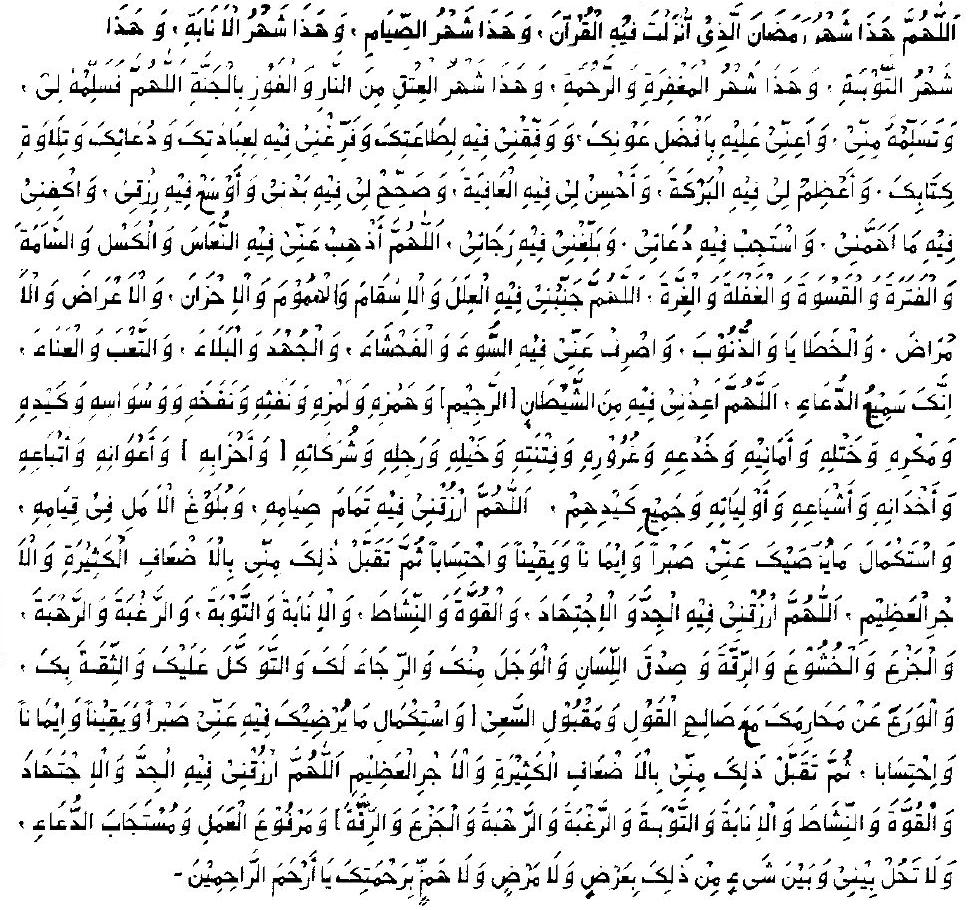 اَللّٰهُمَّ هَذَا شَهْرُ رَمَضَانَ الَّذِيْ اَنْزَلْتَ فِيْهِ الْقُرْآنَ، وَ هَذَا شَهْرُ الصِّيَامِ، وَ هَذَا شَهْرُ الْاَ نَابَةِ، وَ هَذَا
شَهْرُ التَّوْبَةِ، وَ هَذَا شَهْرُ الْمَغْفِرَةِ وَ الرَّحْمَةِ، وَ هَذَا شَهْرُ الْعِتْقِ مِنَ النَّارِ وَ الْفَوْزِ بِالْجَنَّةِ اَللّٰهُمَّ فَسَلِّمْهُ لِىْ،
وَ تَسَلَّمْهُ مِنِّىْ، وَ اَعِنِّىْ عَلَيْهِ بِاَفْضَلِ عَوْنِكَ، وَ وَفِّقْنِىْ فِيْهِ لِطَاعَتِكَ وَ فَرِّغْنِىْ فِيْهِ لِعِبَادَتِكَ وَ دُعَائِكَ وَ تِلَاوَةِ
كِتَابِكَ، وَ اَعْظِمْ لِىْ فِيْهِ الْبَرَكَةَ، وَ اَحْسِنْ لِىْ فِيْهِ الْعَافِيَةَ، وَ صَحِّحْ لِىْ فِيْهِ بَدَنِىْ وَ اَوْسِعْ فِيْهِ رِزْقِىْ، وَ اكْفِنِىْ
فِيْهِ مَا اَهَمَّنِىْ، وَ اسْتَجِبْ فِيْهِ دُعَائِىْ، وَ بَلِّغْنِىْ فِيْهِ رَجَائِىْ، اَللّٰهُمَّ اَذْهِبْ عَنِّىْ فِيْهِ النُّعَاسَ وَ الْكَسَلَ وَ السَّامَةَ
وَ الْفَتْرَةَ وَ الْقَسْوَةَ وَ الْغَفْلَةَ وَ الْغِرَّةَ، اَللّٰهُمَّ جَنِّبْنِىْ فِيْهِ الْعِلَلَ وَ الْاِ سْقَامَ وَ الْهُمُوْمَ وَ الْاِ حْزَانَ، وَ الْاَ عْرَاضَ وَ الْاَ
مْرَاضَ، وَ الْخَطَا يَا وَ الذُّنُوْبَ، وَ اصْرِفْ عَنِّىْ فِيْهِ السُّوْءَ وَ الْفَحْشَاءَ، وَ الْجُهْدَ وَ الْبَلَاءَ، وَ التَّعْبَ وَ الْعَنَاءَ،
اِنَّكَ سَمِيْعُ الدُّعَاءِ، اَللّٰهُمَّ اَعِذْنِىْ فِيْهِ مِنَ الشَّيْطَانِ [الرَّجِيْمِ] وَ هَمْزِهِ وَ لَمْزِهِ وَ نَفْثِهِ وَ نَفْخِهِ وَ وَسْوَاسِهِ وَ كَيْدِهِ
وَ مَكْرِهِ وَ خَتْلِهِ وَ اَمَانِيْهِ وَ خَدْعِهِ وَ غُرُوْرِهِ وَ فِتْنَتِهِ وَ خَيْلِهِ وَ رَجِلِهِ وَ شُرَكَائِهِ [ وَ اَحْزَابِهِ ] وَ اَعْوَانِهِ وَ اَتْبَاعِهِ
وَ اَخْدَانِهِ وَ اَشْيَاعِهِ وَ اَوْلِيَائِهِ وَ جَمِيْعِ كَيْدِهِمْ، اَللّٰهُمَّ ارْزُقْنِىْ فِيْهِ تَمَامَ صِيَامِهِ، وَ بُلُوْغَ الْاَ مَلِ فِىْ قِيَامِهِ،
وَ اسْتِكْمَالَ مَا يُرْضِيْكَ عَنِّىْ صَبْراً وَ اِيْمَا ناً وَ يَقِيْناً وَ احْتِسَاباً ثُمَّ تَقَبَّلْ ذٰلِكَ مِنِّى بِالْاَ ضْعَافِ الْكَثِيْرَةِ وَ الْاَ
جْرِ الْعَظِيْمِ، اَللّٰهُمَّ ارْزُقْنِىْ فِيْهِ الْجِدَّ وَ الْاِجْتِهَادَ، وَ الْقُوَّةَ وَ النِّشَاطَ، وَ الْاِ نَابَةَ وَ التَّوْبَةَ، وَ الرَّغْبَةَ وَ الرَّهْبَةَ،
وَ الْجَزْعَ وَ الْخُشُوْعَ وَ الرِّقَّةَ وَ صِدْقَ اللِّسَانِ وَ الْوَجَلَ مِنْكَ وَ الرِّ جَاءَ لَكَ وَ التَّوَ كُّلَ عَلَيْكَ وَ الثِّقَةَ بِكَ،
وَ الْوَرَعَ عَنْ مَحَارِمِكَ مَعَ صَالِحِ الْقَوْلِ وَ مَقْبُوْلِ السَّعْىِ [ وَ اسْتِكْمَالِ مَا يُرْضِيْكَ فِيْهِ عَنِّىْ صَبْراً وَ يَقِيْناً وَ اِيْمَا ناً
وَ احْتِسَابا، ثُمَّ تَقَبَّلْ ذٰلِكَ مِنِّىْ بِالْاَ ضْعَافِ الْكَثِيْرَةِ وَ الْاَ جْرِ الْعَظِيْمِ اَللّٰهُمَّ ارْزُقْنِىْ فِيْهِ الْجِدَّ وَ الْاِ جْتِهَادَ
وَ الْقُوَّةَ وَ النِّشَاطَ وَ الْاِ نَابَةَ وَ التَّوْبَةَ وَ الرَّغْبَةَ وَ الرَّهْبَةَ وَ الْجَزْعَ وَ الرِّقَّةَ] وَ مَرْفُوْعَ الْعَمَلِ وَ مُسْتَجَابَ الدُّعَاءِ،
وَ لَا تَحُلْ بَيْنِىْ وَ بَيْنَ شَىْءٍ مِنْ ذٰلِكَ بِعَرَضٍ وَ لَا مَرَضٍ وَ لَا هَمٍّ بِرَحْمَتِكَ يَا اَرْحَمَ الرَّاحِمِيْنَ-